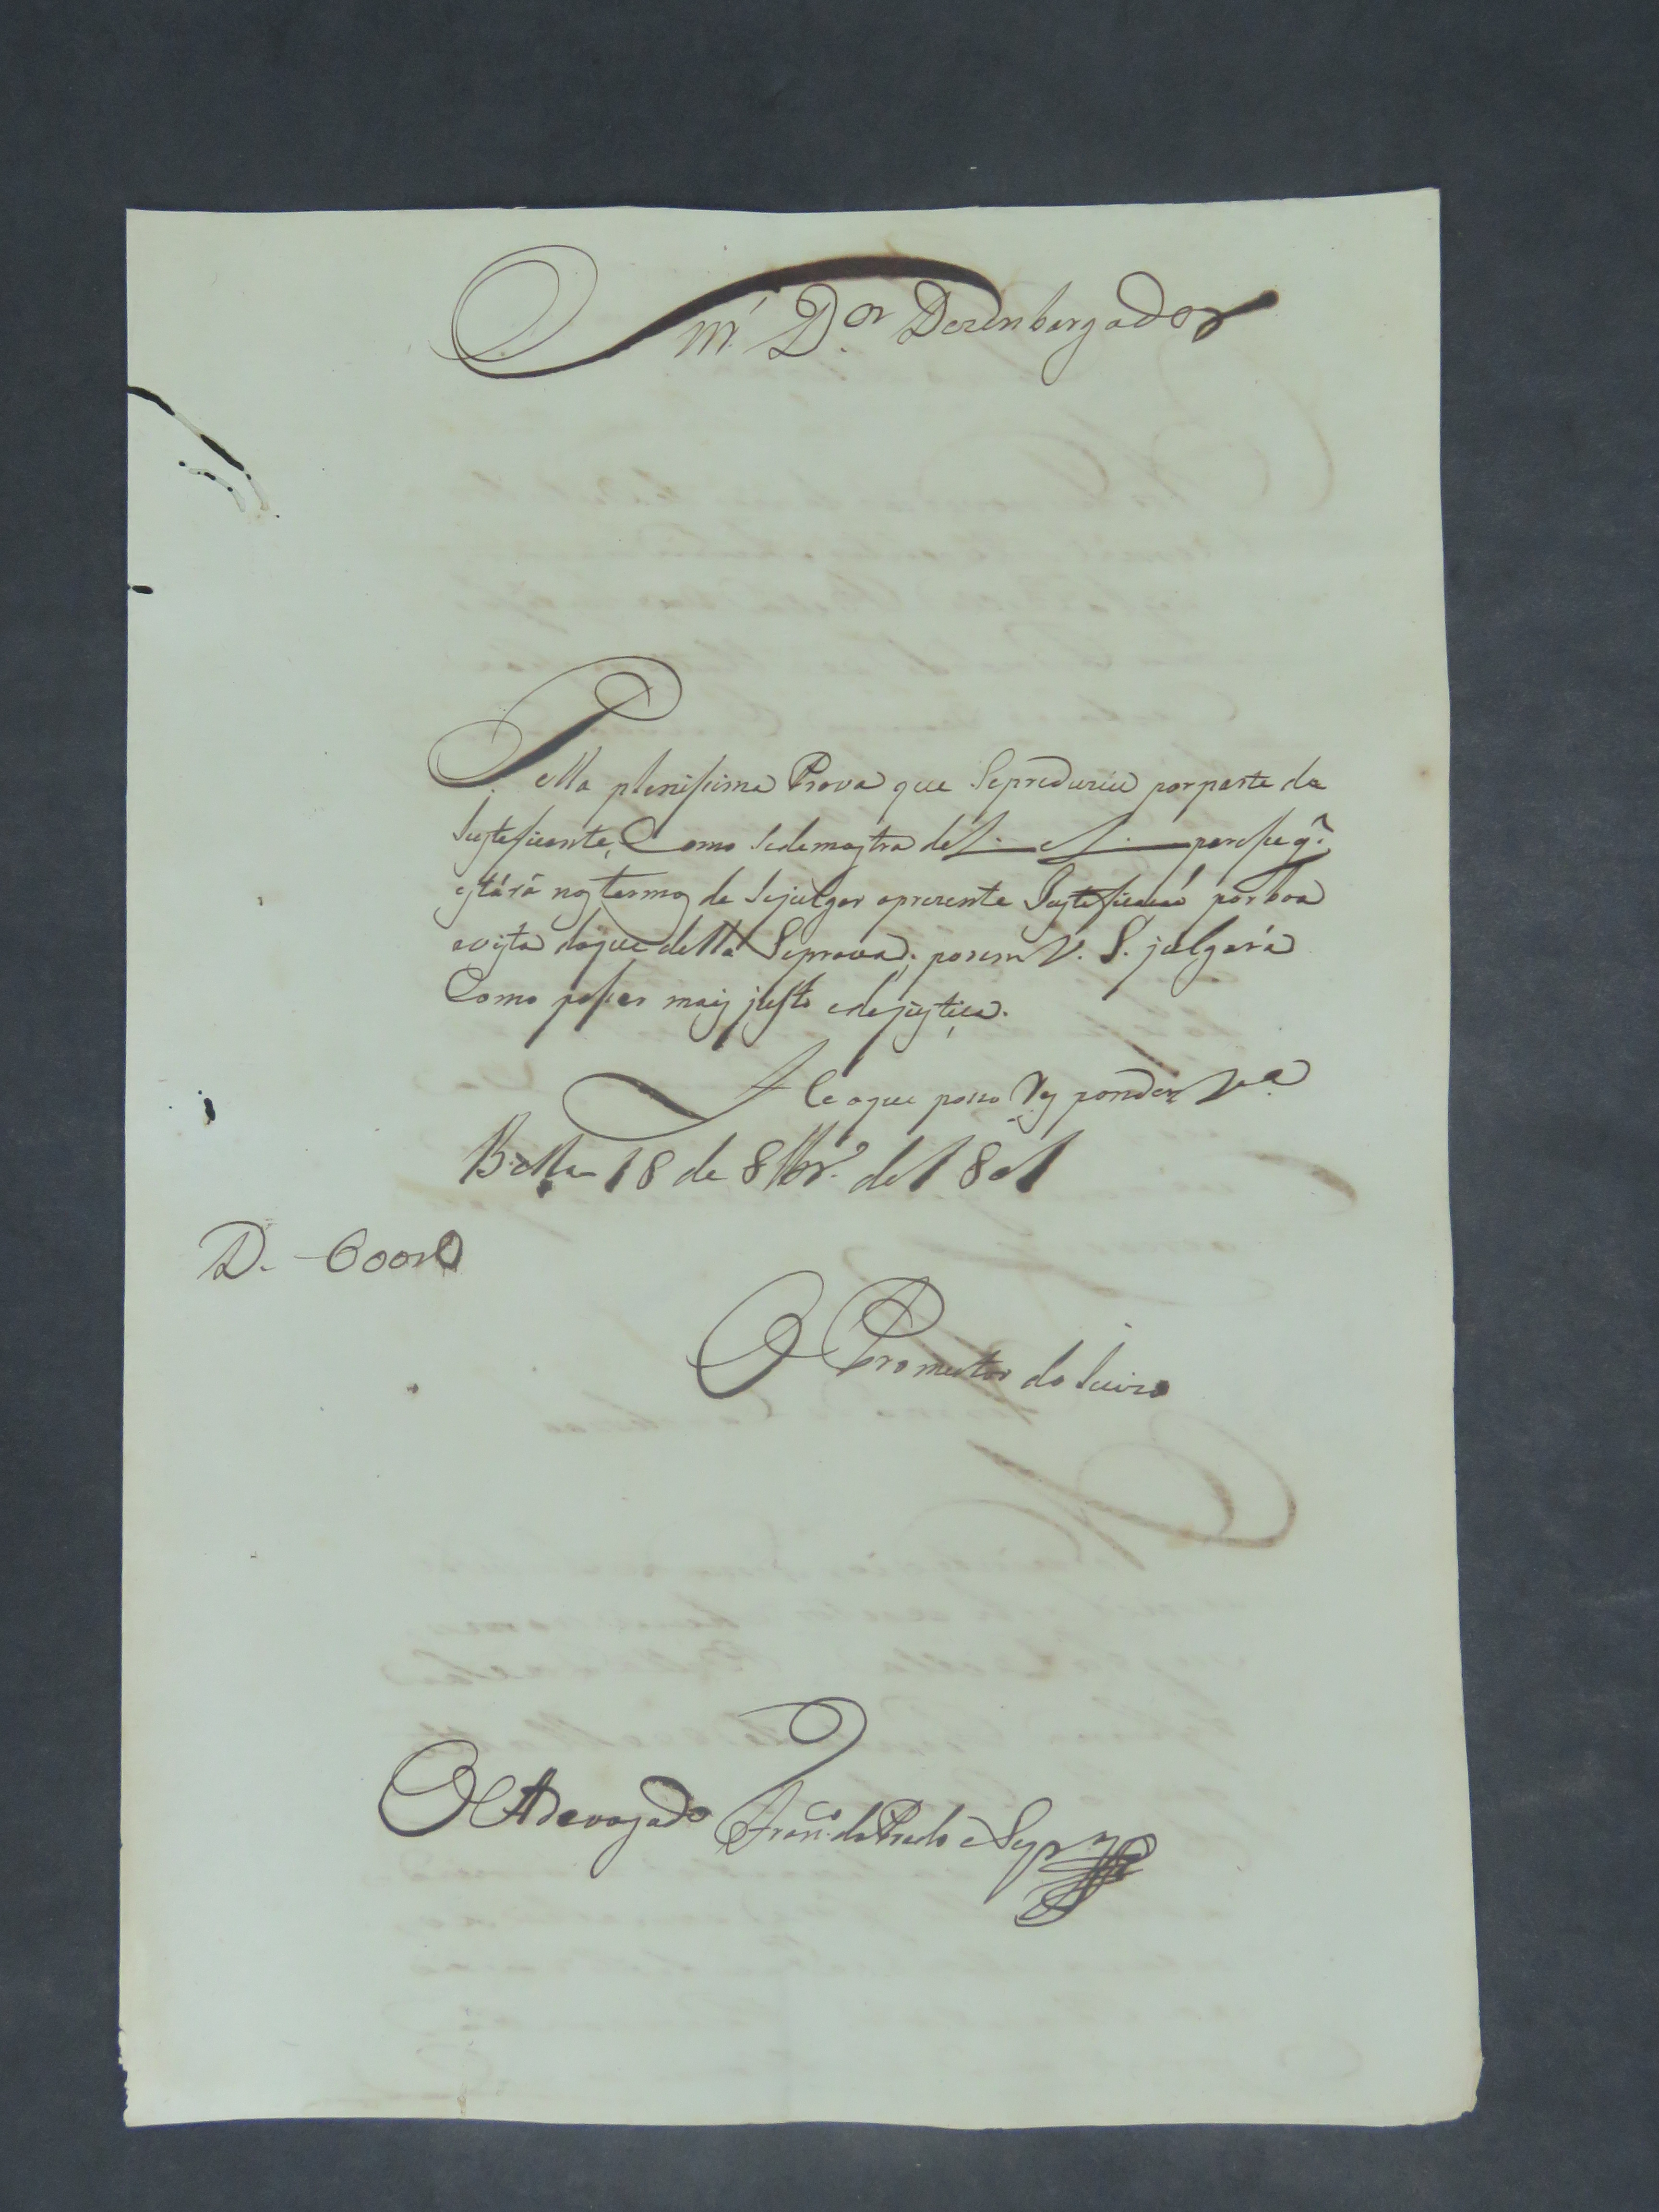 Snr. Dor. Dezenbargador
Pella plenissima Prova que Seproduziu porparte da
Justeficante, Como sedemostra def. af. parese q.
estárá nos termos de sejulgar aprezente Justeficaçaõ por boa
avista doque della Seprova; porem V. S. julgará
Como for mais justo edejustiça.
He oque posso Responder V.a
Bella 18 de 8br.o de 1801
D. - 600 r
O Promutor do Juizo
O Adevogado Franco. do Prado e Sqr.a